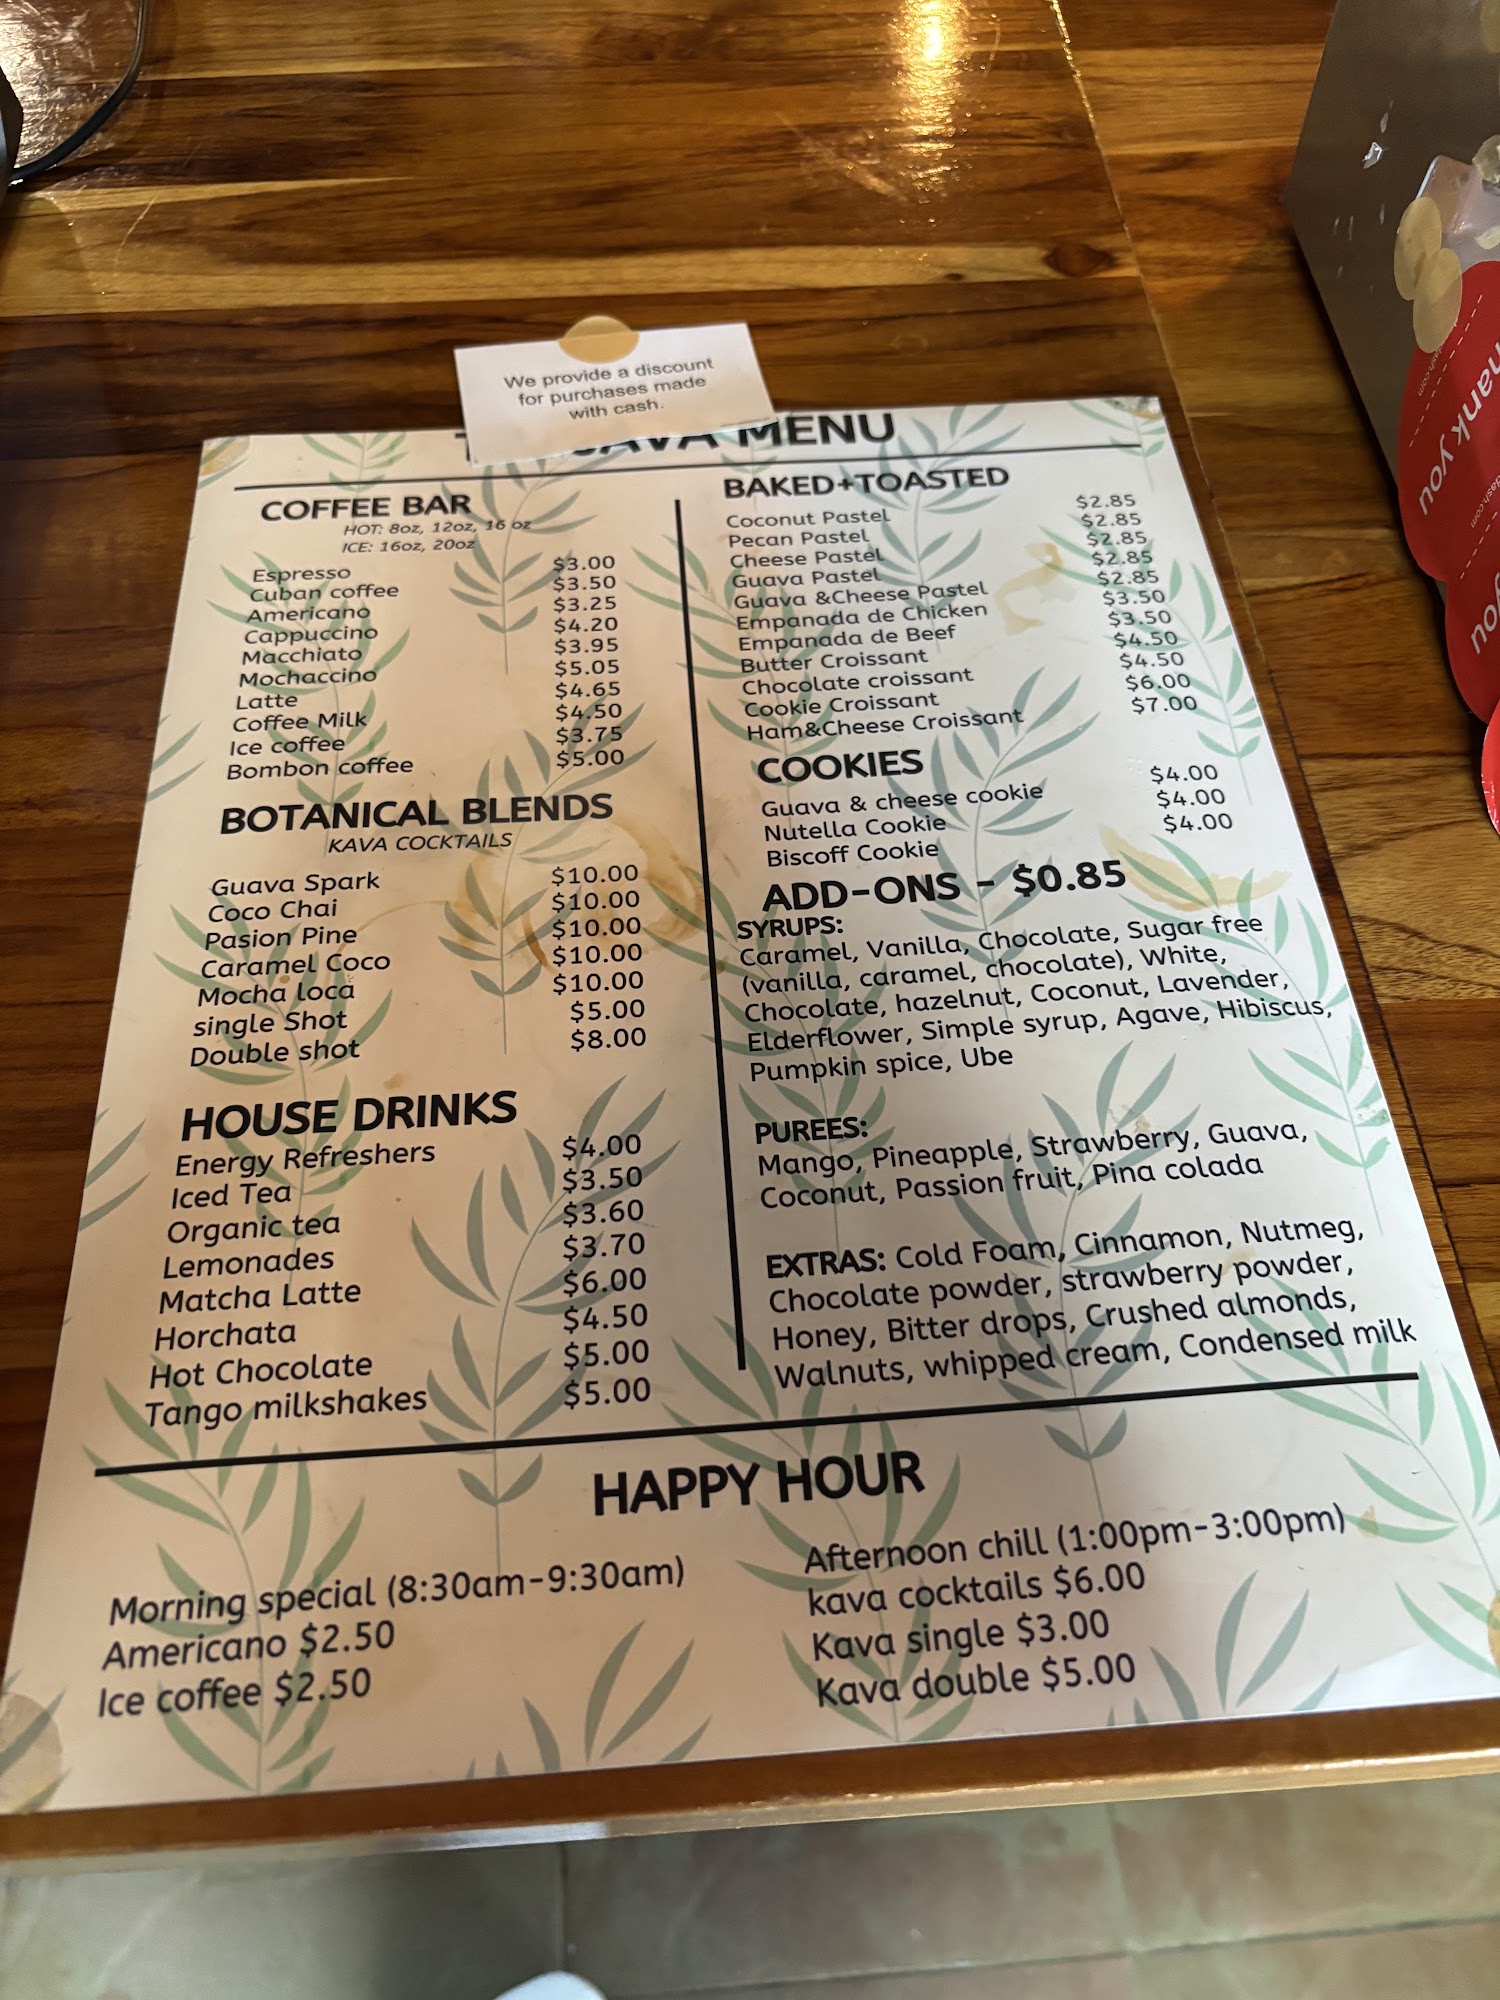 We provide a discount
for purchases made
with cash.
MENU
COFFEE BAR
HOT: 8oz, 12oz, 16 oz
ICE: 16oz, 20oz
Espresso $3.00
Cuban coffee $3.50
Americano $3.25
Cappuccino $4.20
Macchiato $3.95
Mochaccino $5.05
Latte $4.65
Coffee Milk $4.50
Ice coffee $3.75
Bombon coffee $5.00
BOTANICAL BLENDS
KAVA COCKTAILS
Guava Spark $10.00
Coco Chai $10.00
Pasion Pine $10.00
Caramel Coco $10.00
Mocha loca $10.00
single Shot $5.00
Double shot $8.00
HOUSE DRINKS
Energy Refreshers $4.00
Iced Tea $3.50
Organic tea $3.60
Lemonades $3.70
Matcha Latte $6.00
Horchata $4.50
Hot Chocolate $5.00
Tango milkshakes $5.00
BAKED+TOASTED
Coconut Pastel $2.85
Pecan Pastel $2.85
Cheese Pastel $2.85
Guava Pastel $2.85
Guava &Cheese Pastel $2.85
Empanada de Chicken $3.50
Empanada de Beef $3.50
Butter Croissant $4.50
Chocolate croissant $4.50
Cookie Croissant $6.00
Ham&Cheese Croissant $7.00
COOKIES
Guava & cheese cookie $4.00
Nutella Cookie $4.00
Biscoff Cookie $4.00
ADD-ONS - $0.85
SYRUPS:
Caramel, Vanilla, Chocolate, Sugar free
(vanilla, caramel, chocolate), White,
Chocolate, hazelnut, Coconut, Lavender,
Elderflower, Simple syrup, Agave, Hibiscus,
Pumpkin spice, Ube
PUREES:
Mango, Pineapple, Strawberry, Guava,
Coconut, Passion fruit, Pina colada
EXTRAS: Cold Foam, Cinnamon, Nutmeg,
Chocolate powder, strawberry powder,
Honey, Bitter drops, Crushed almonds,
Walnuts, whipped cream, Condensed milk
HAPPY HOUR
Morning special (8:30am-9:30am)
Americano $2.50
Ice coffee $2.50
Afternoon chill (1:00pm-3:00pm)
kava cocktails $6.00
Kava single $3.00
Kava double $5.00
hank you
you